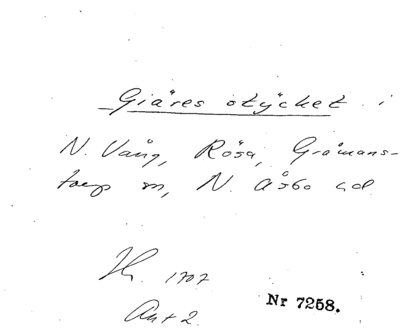 Giäres stÿcket i
N. Vång, Rösa, Gråmans-
torp sn, N. Åsbo hd
1707
Akt 2.
Nr 7258.